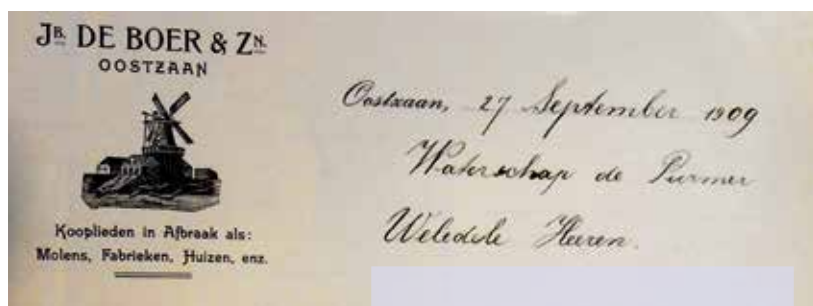 JB. DE BOER & ZN.
OOSTZAAN
Kooplieden in Afbraak als:
Molens, Fabrieken, Huizen, enz.
Oostzaan, 27 September 1909
Waterschap de Purmer
Weledele Heeren.